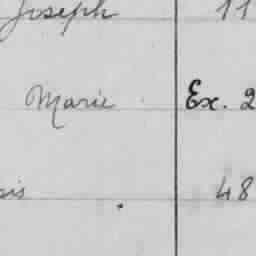 Joseph 11
Marie Ex. 2
sis 48